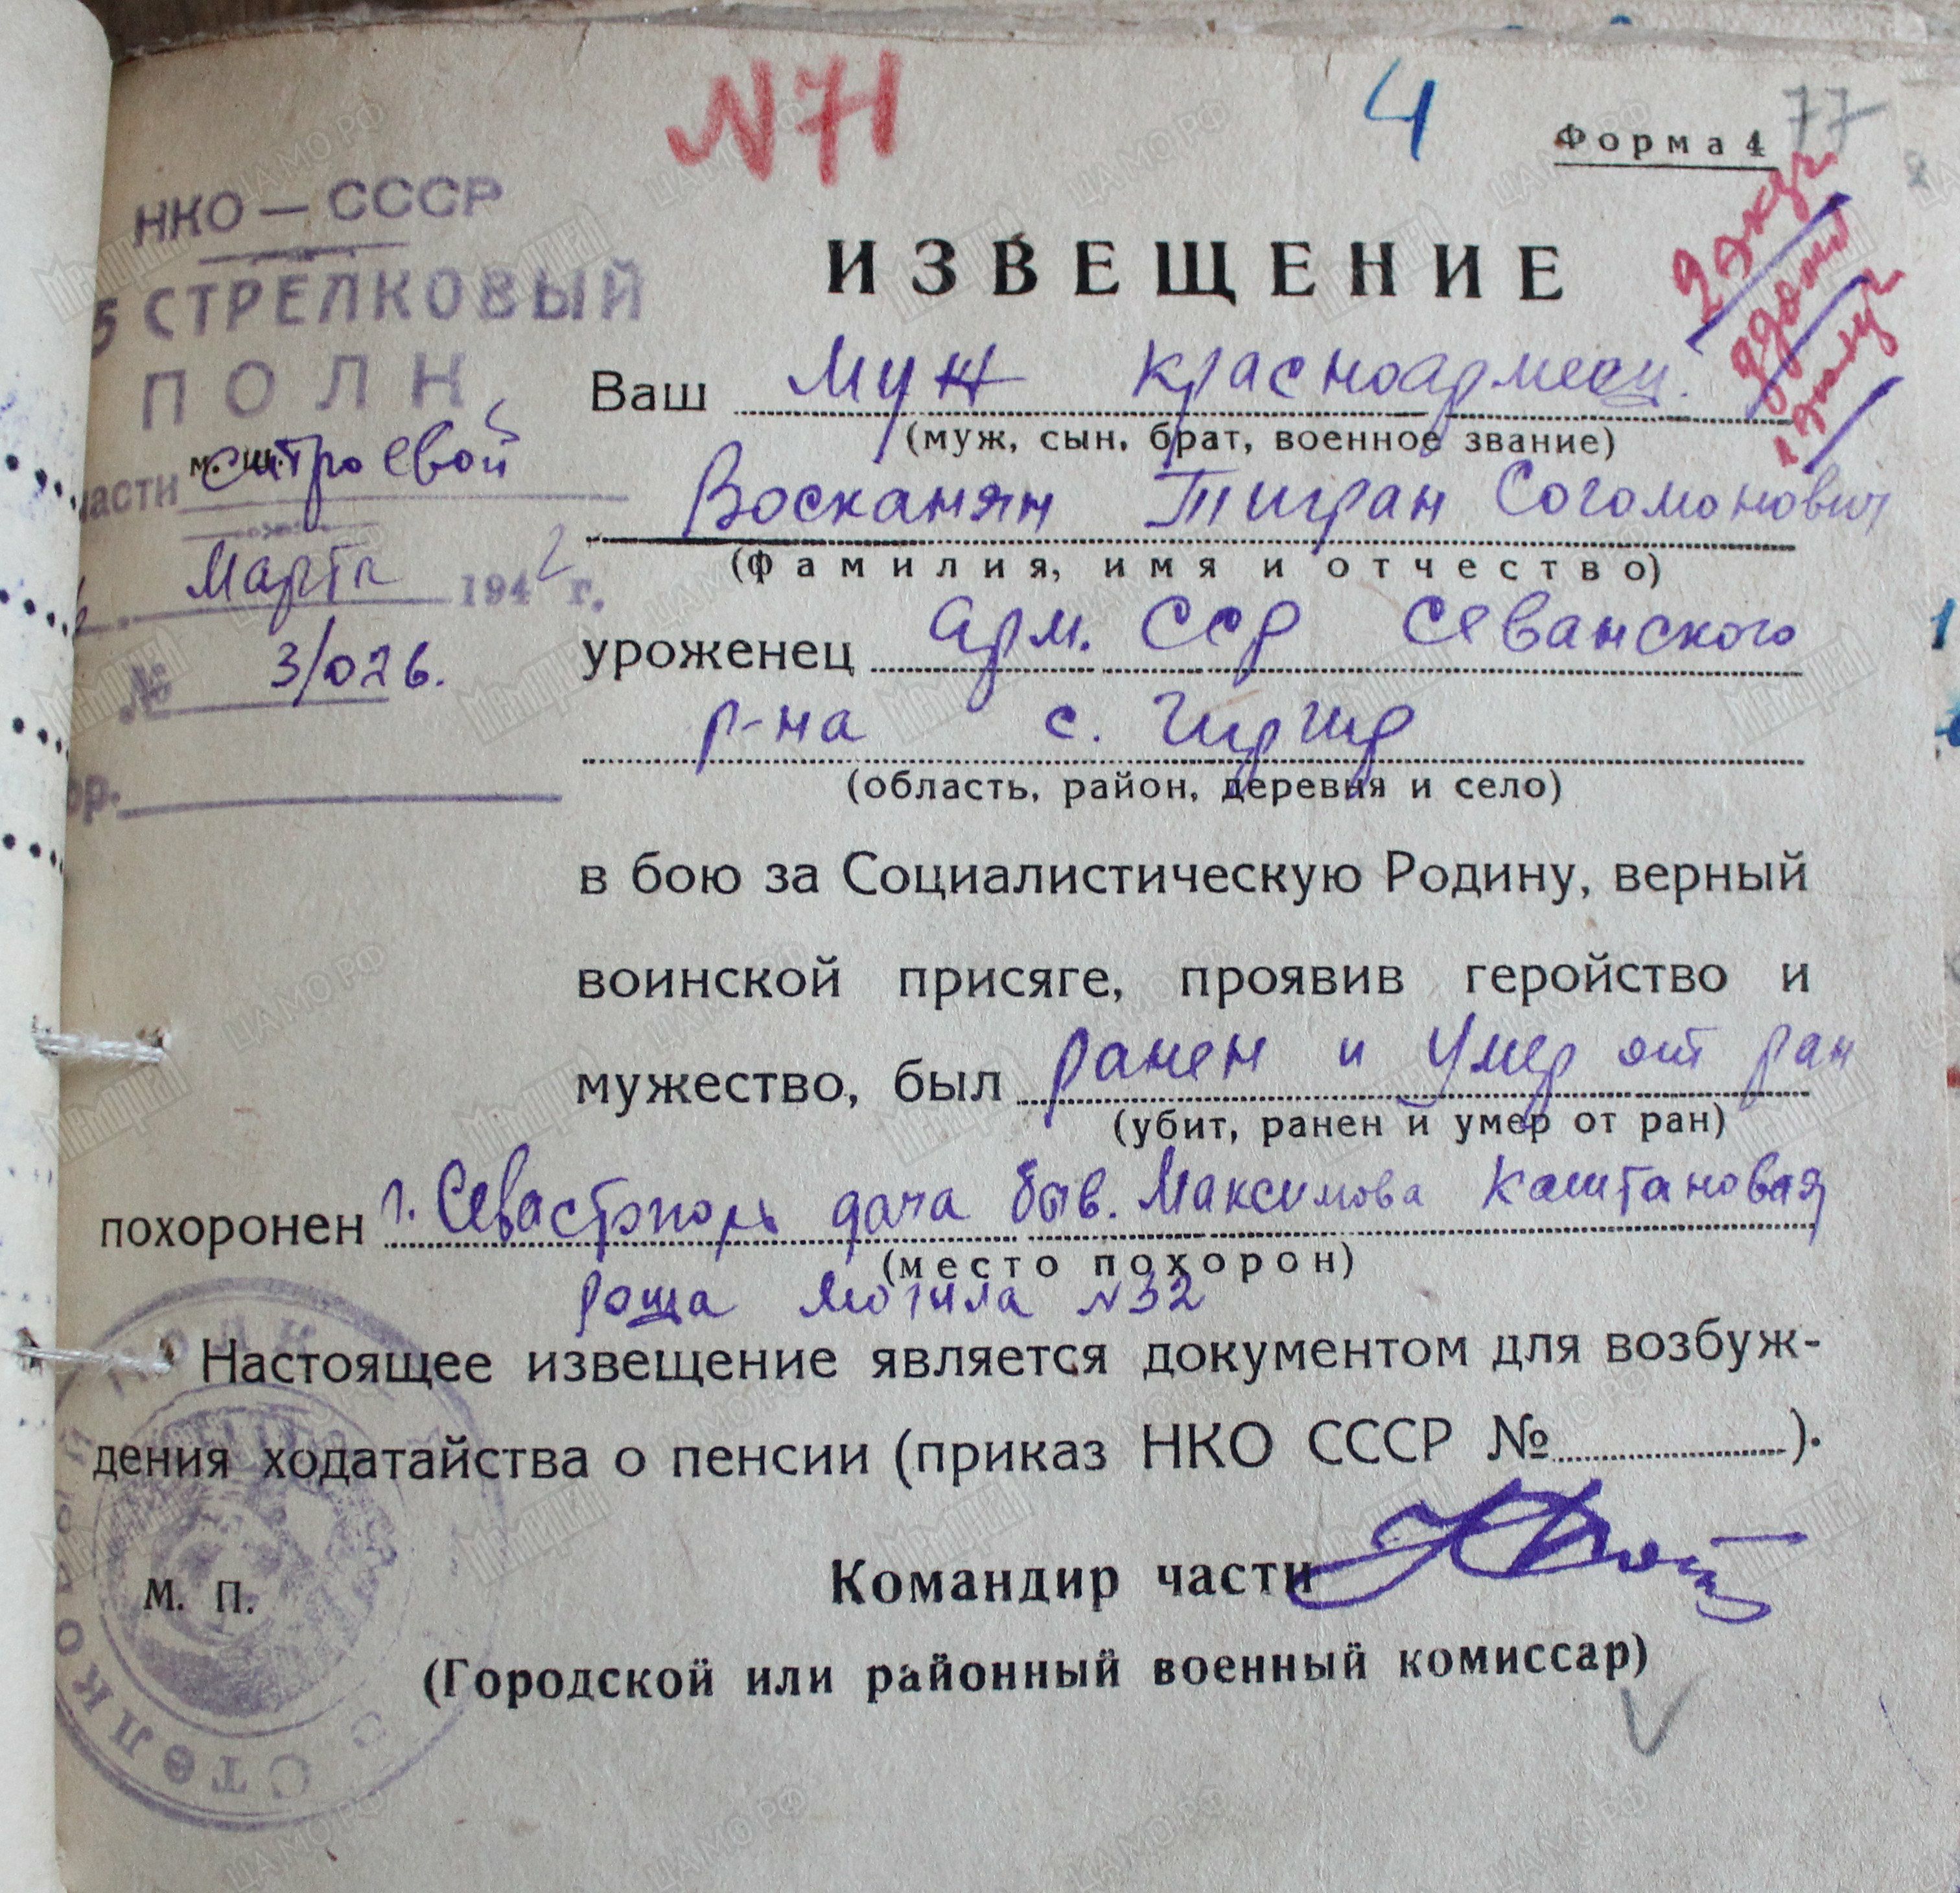 N71
4
Форма 4
77
2 экз
1 экз
НКО — СССР
5 СТРЕЛКОВЫЙ
ПОЛК
части строевой
Марта 1942 г.
№ 3/026.
ИЗВЕЩЕНИЕ
Ваш муж красноармеец.
(муж, сын, брат, военное звание)
Восканян Тигран Согомонович
(фамилия, имя и отчество)
уроженец Арм. ССР Севанского
р-на с.
(область, район, деревня и село)
в бою за Социалистическую Родину, верный
воинской присяге, проявив геройство и
мужество, был ранен и умер от ран
(убит, ранен и умер от ран)
похоронен г. Севастополь дача быв. Максимова Каштановая
(место похорон)
роща могила N32
Настоящее извещение является документом для возбуж-
дения ходатайства о пенсии (приказ НКО СССР № ).
Командир части
М. П.
(Городской или районный военный комиссар)